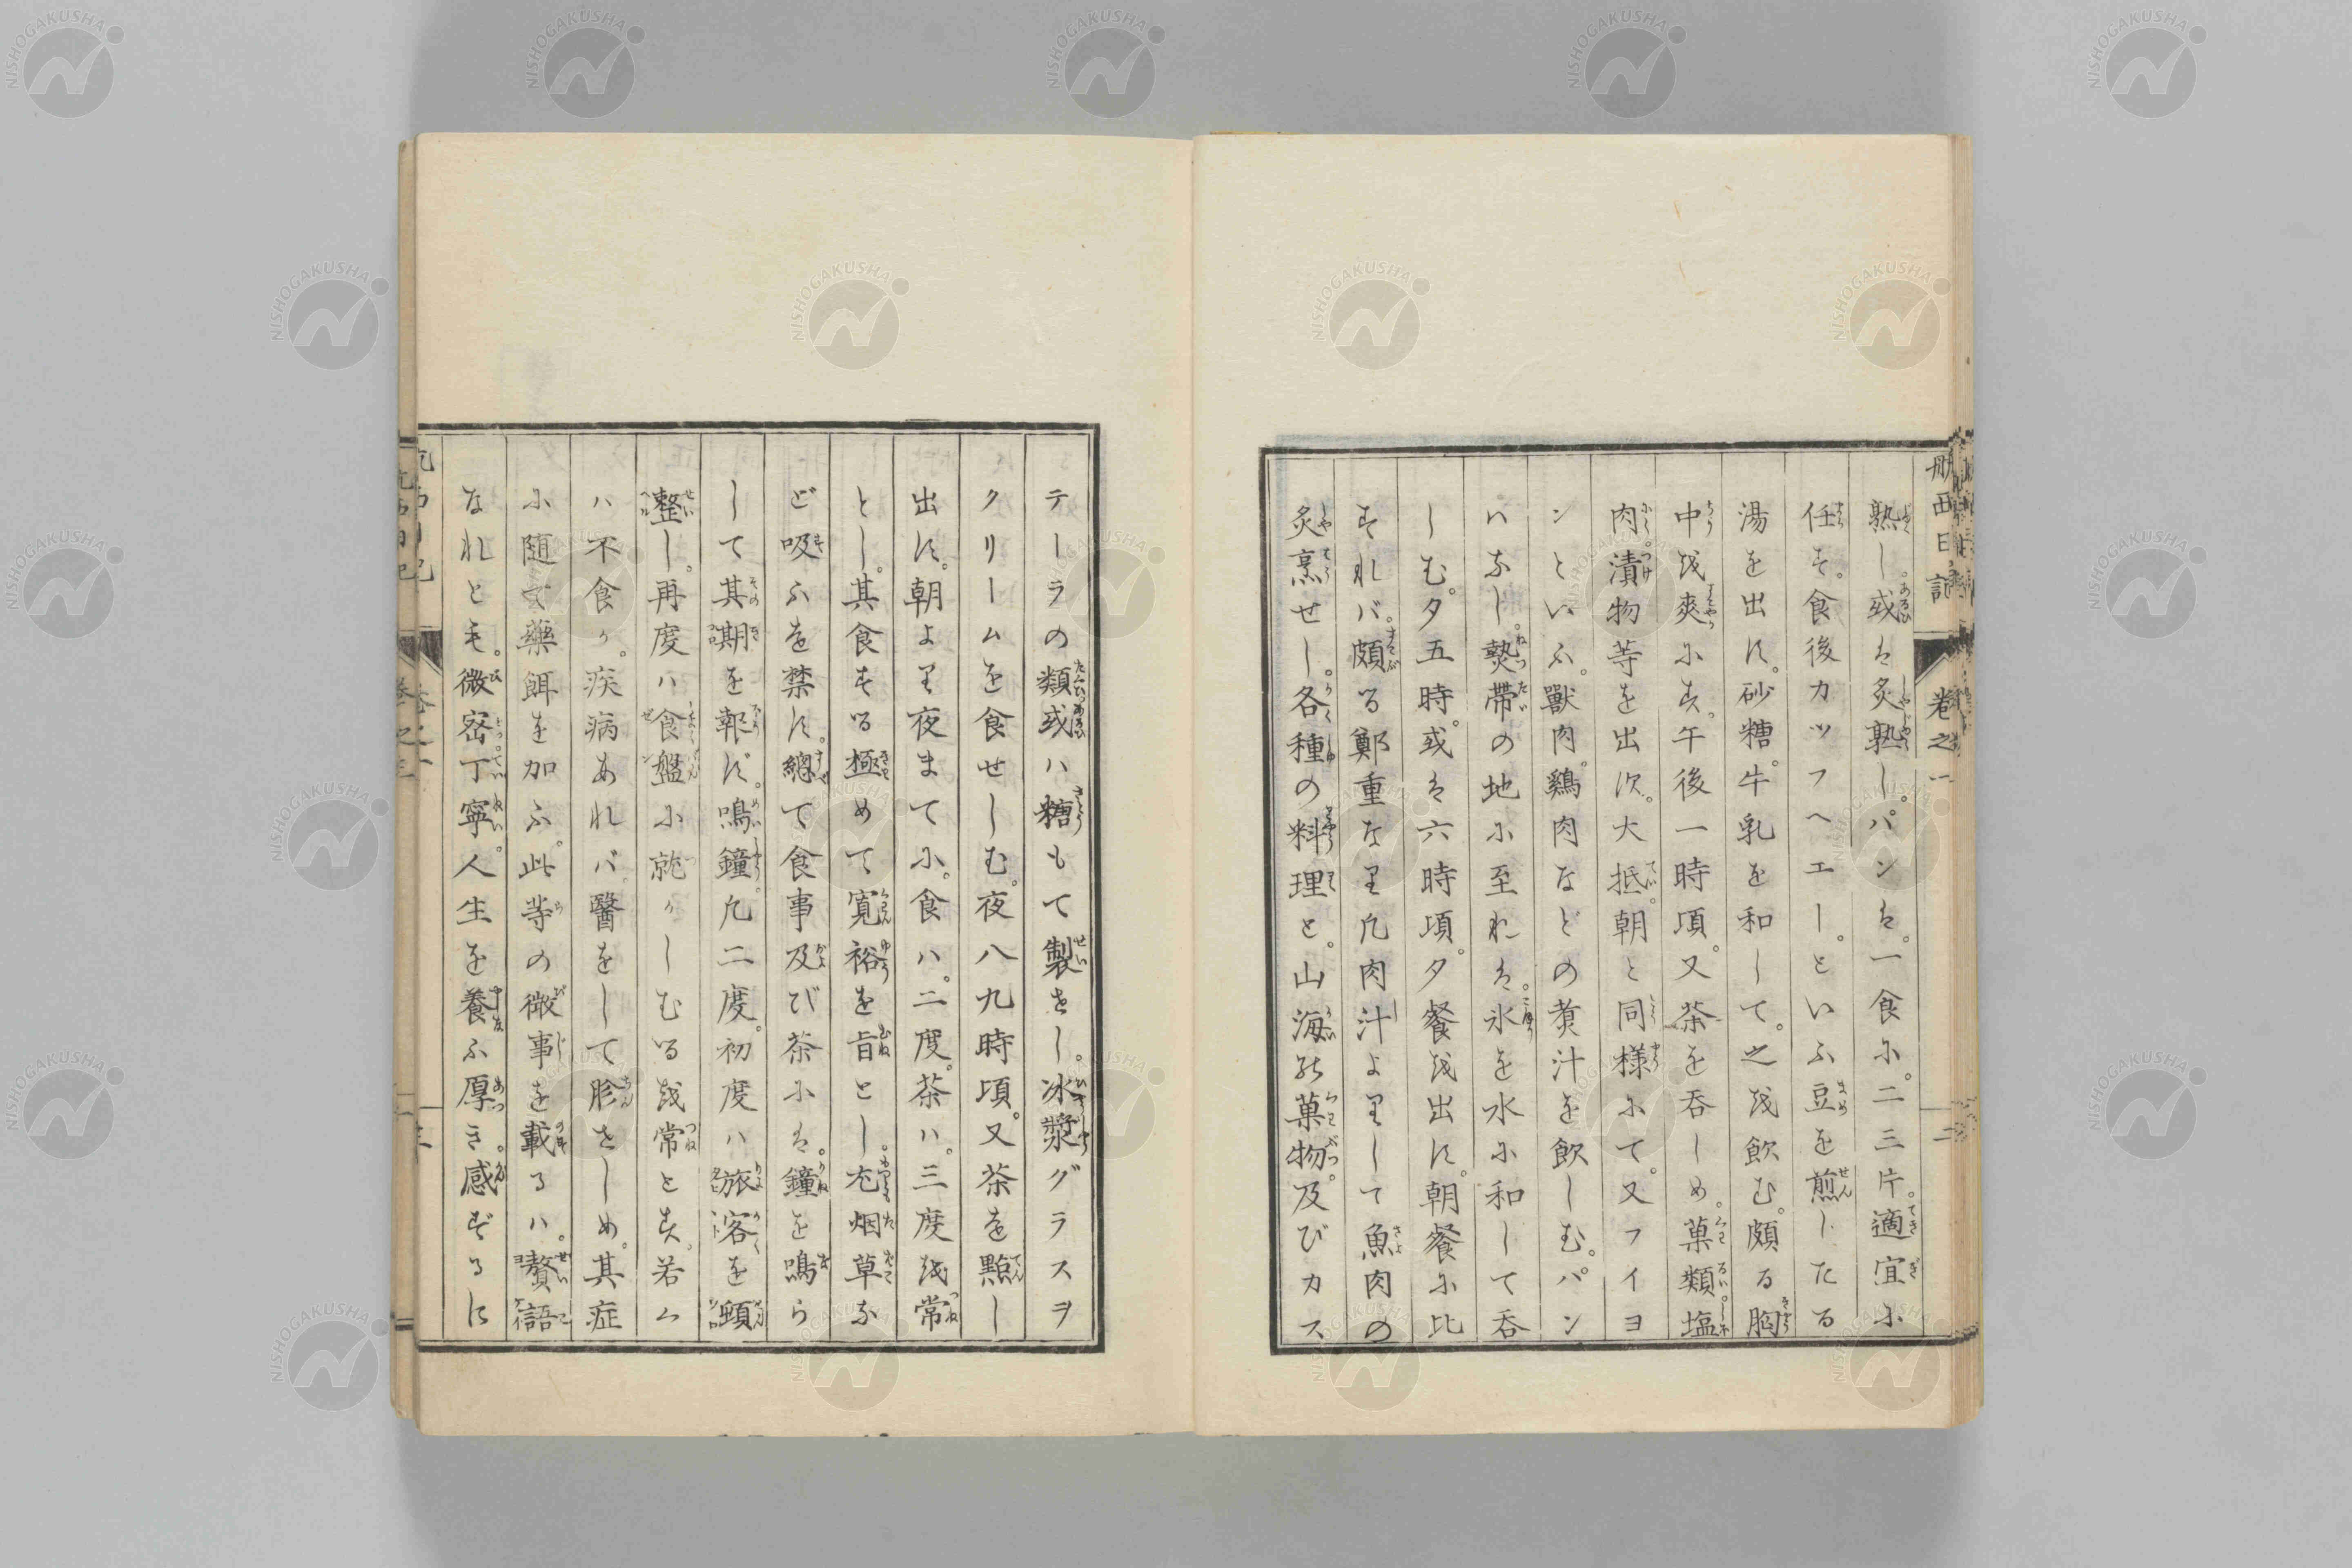 航西日記 卷之一 二
熟し。或ハ炙熟し。パンハ。一食に。二三片。適宜に
任す。食後カッフヘエー。といふ豆を煎じたる
湯を出す。砂糖。牛乳を和して。之を飲む。頗る胸
中を爽にす。午後一時頃。又茶を呑しめ。菓類。塩
肉。漬物等を出す。大抵。朝と同様にて。又フイヨ
ンといふ。獸肉。鷄肉などの煮汁を飲しむ。パン
ハなし。熱帶の地に至れハ。氷を水に和して呑
しむ。夕五時。或ハ六時頃。夕餐を出す。朝餐に比
すれバ。頗る鄭重なり凡肉汁よりして魚肉の
炙烹せし。各種の料理と。山海の菓物。及びカス
テーラの類或ハ糖もて製せし。冰漿グラスヲ
クリームを食せしむ。夜八九時頃。又茶を點し
出す。朝より夜まてに。食ハ。二度。茶ハ。三度を常
とし。其食する極めて寛裕を旨とし。尤烟草な
ど吸ふを禁す。總て食事及び茶にハ。鐘を鳴ら
して其期を報ず。鳴鐘凡二度。初度ハ旅客を顗
整し。再度ハ食盤に就かしむるを常とす。若シ
ハ不食か。疾病あれバ醫をして胗せしめ。其症
に随て藥餌を加ふ。此等の微事を載るハ。贅語
なれとも。微密丁寧。人生を養ふ厚き。感ずるに